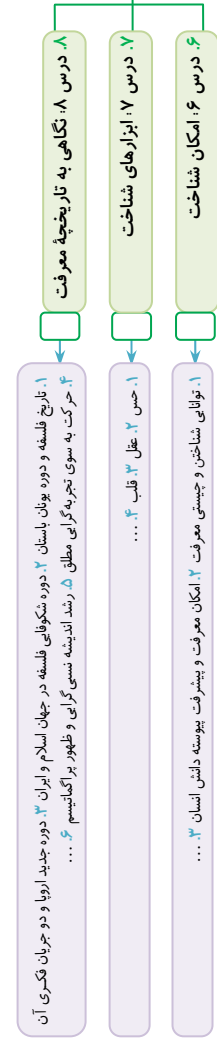 ۶. درس ۶: امکان شناخت
۱. توانایی شناختن و چیستی معرفت ۲. امکان معرفت و پیشرفت پیوسته دانش انسان ۳. ...
۷. درس ۷: ابزارهای شناخت
۱. حس ۲. عقل ۳. قلب ۴. ...
۸. درس ۸: نگاهی به تاریخچهٔ معرفت
۱. تاریخ فلسفه و دوره یونان باستان ۲. دوره شکوفایی فلسفه در جهان اسلام و ایران ۳. دوره جدید اروپا و دو جریان فکری آن
۴. حرکت به سوی تجربه‌گرایی مطلق ۵. رشد اندیشه نسبی‌گرایی و ظهور پراگماتیسم ۶. ...